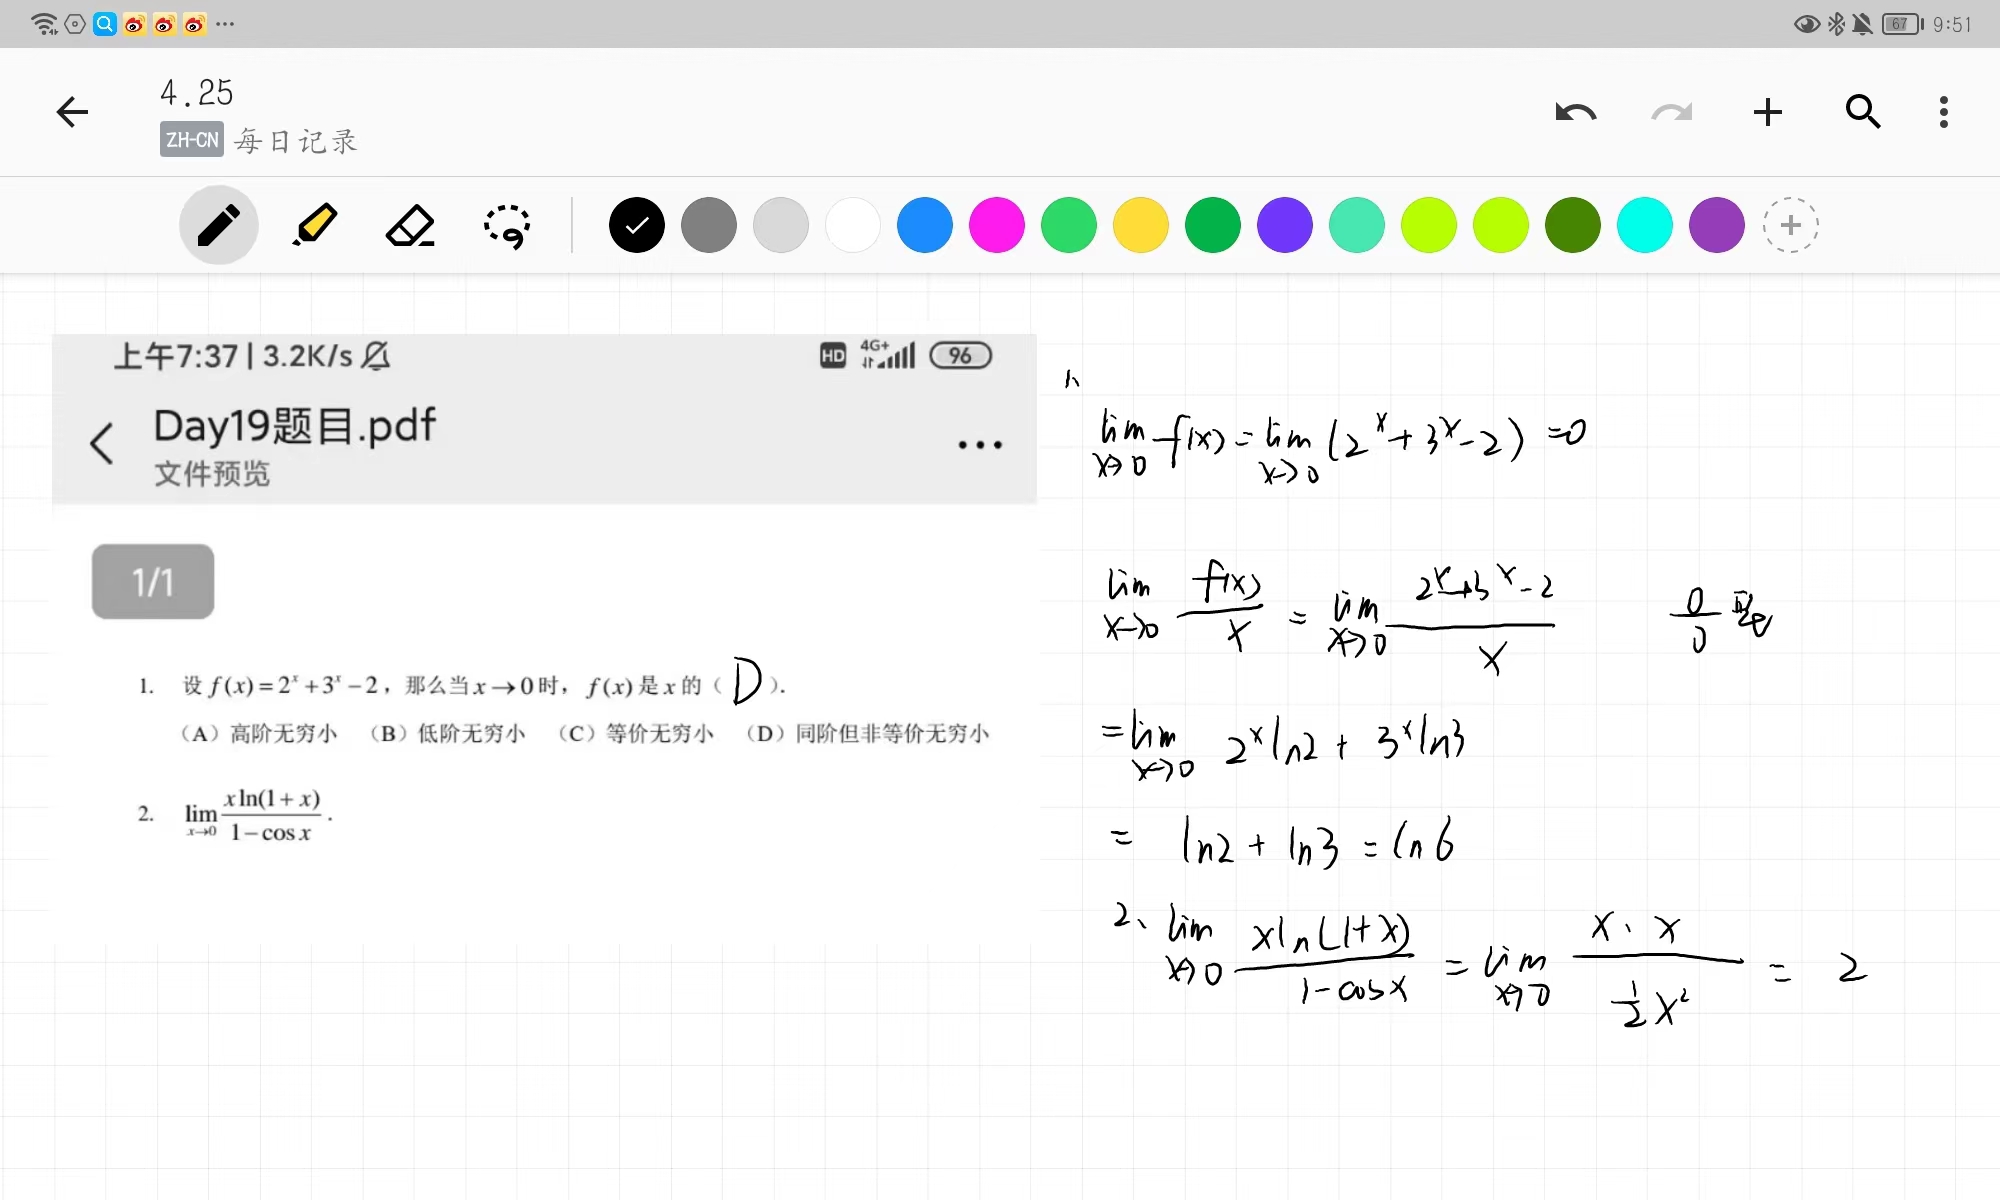 9:51
67
4.25
ZH-CN 每日记录
上午7:37 | 3.2K/s HD 4G+ 96
Day19题目.pdf
文件预览
1/1
1. 设 f(x)=2ˣ+3ˣ−2，那么当 x→0时，f(x) 是 x 的（ D ）.
（A）高阶无穷小 （B）低阶无穷小 （C）等价无穷小 （D）同阶但非等价无穷小
2. lim x→0 x ln(1+x) / 1−cos x .
1、
lim x→0 f(x) = lim x→0 (2ˣ+3ˣ−2) =0
lim x→0 f(x)/x = lim x→0 (2ˣ+3ˣ−2)/x 0/0 型
= lim x→0 2ˣln2 + 3ˣln3
= ln2 + ln3 = ln6
2、 lim x→0 xln(1+x) / 1−cosx = lim x→0 x·x / ½x² = 2